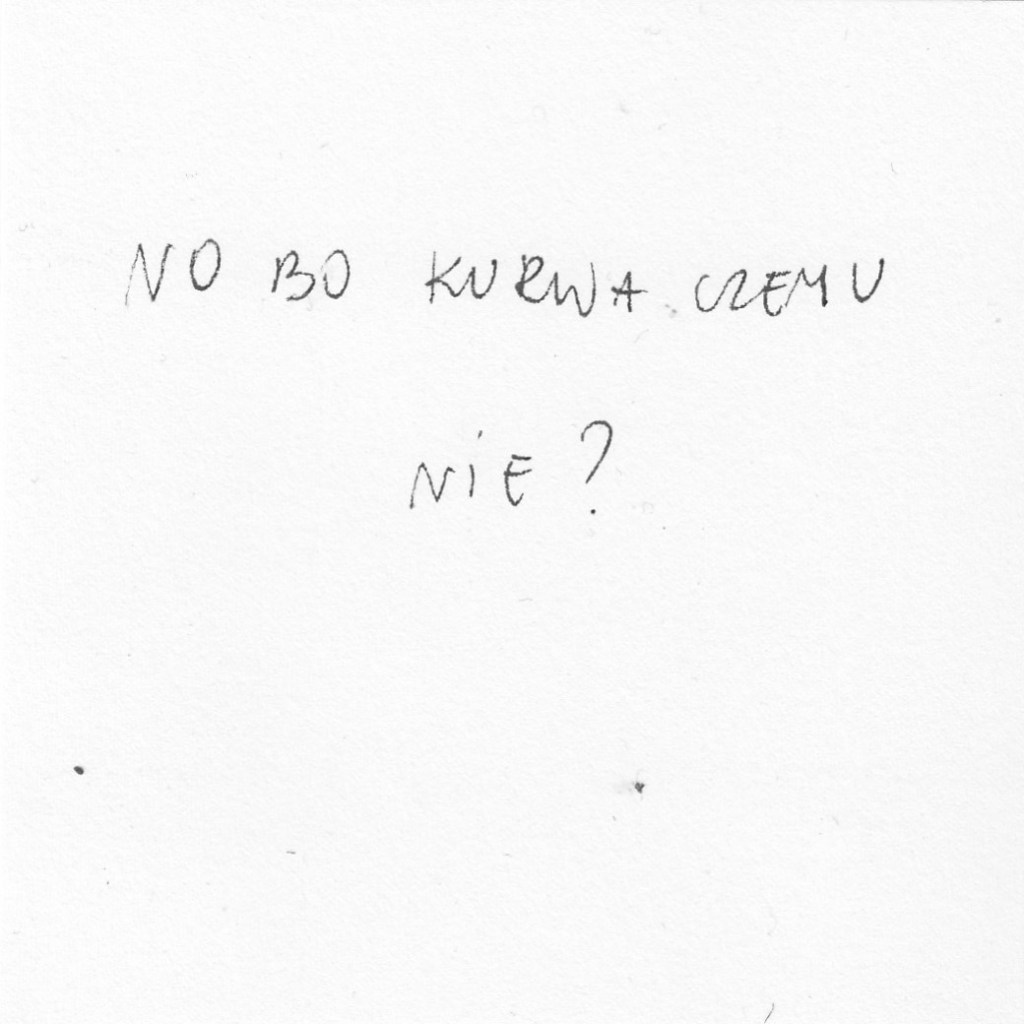 NO BO KURWA CZEMU
NIE?